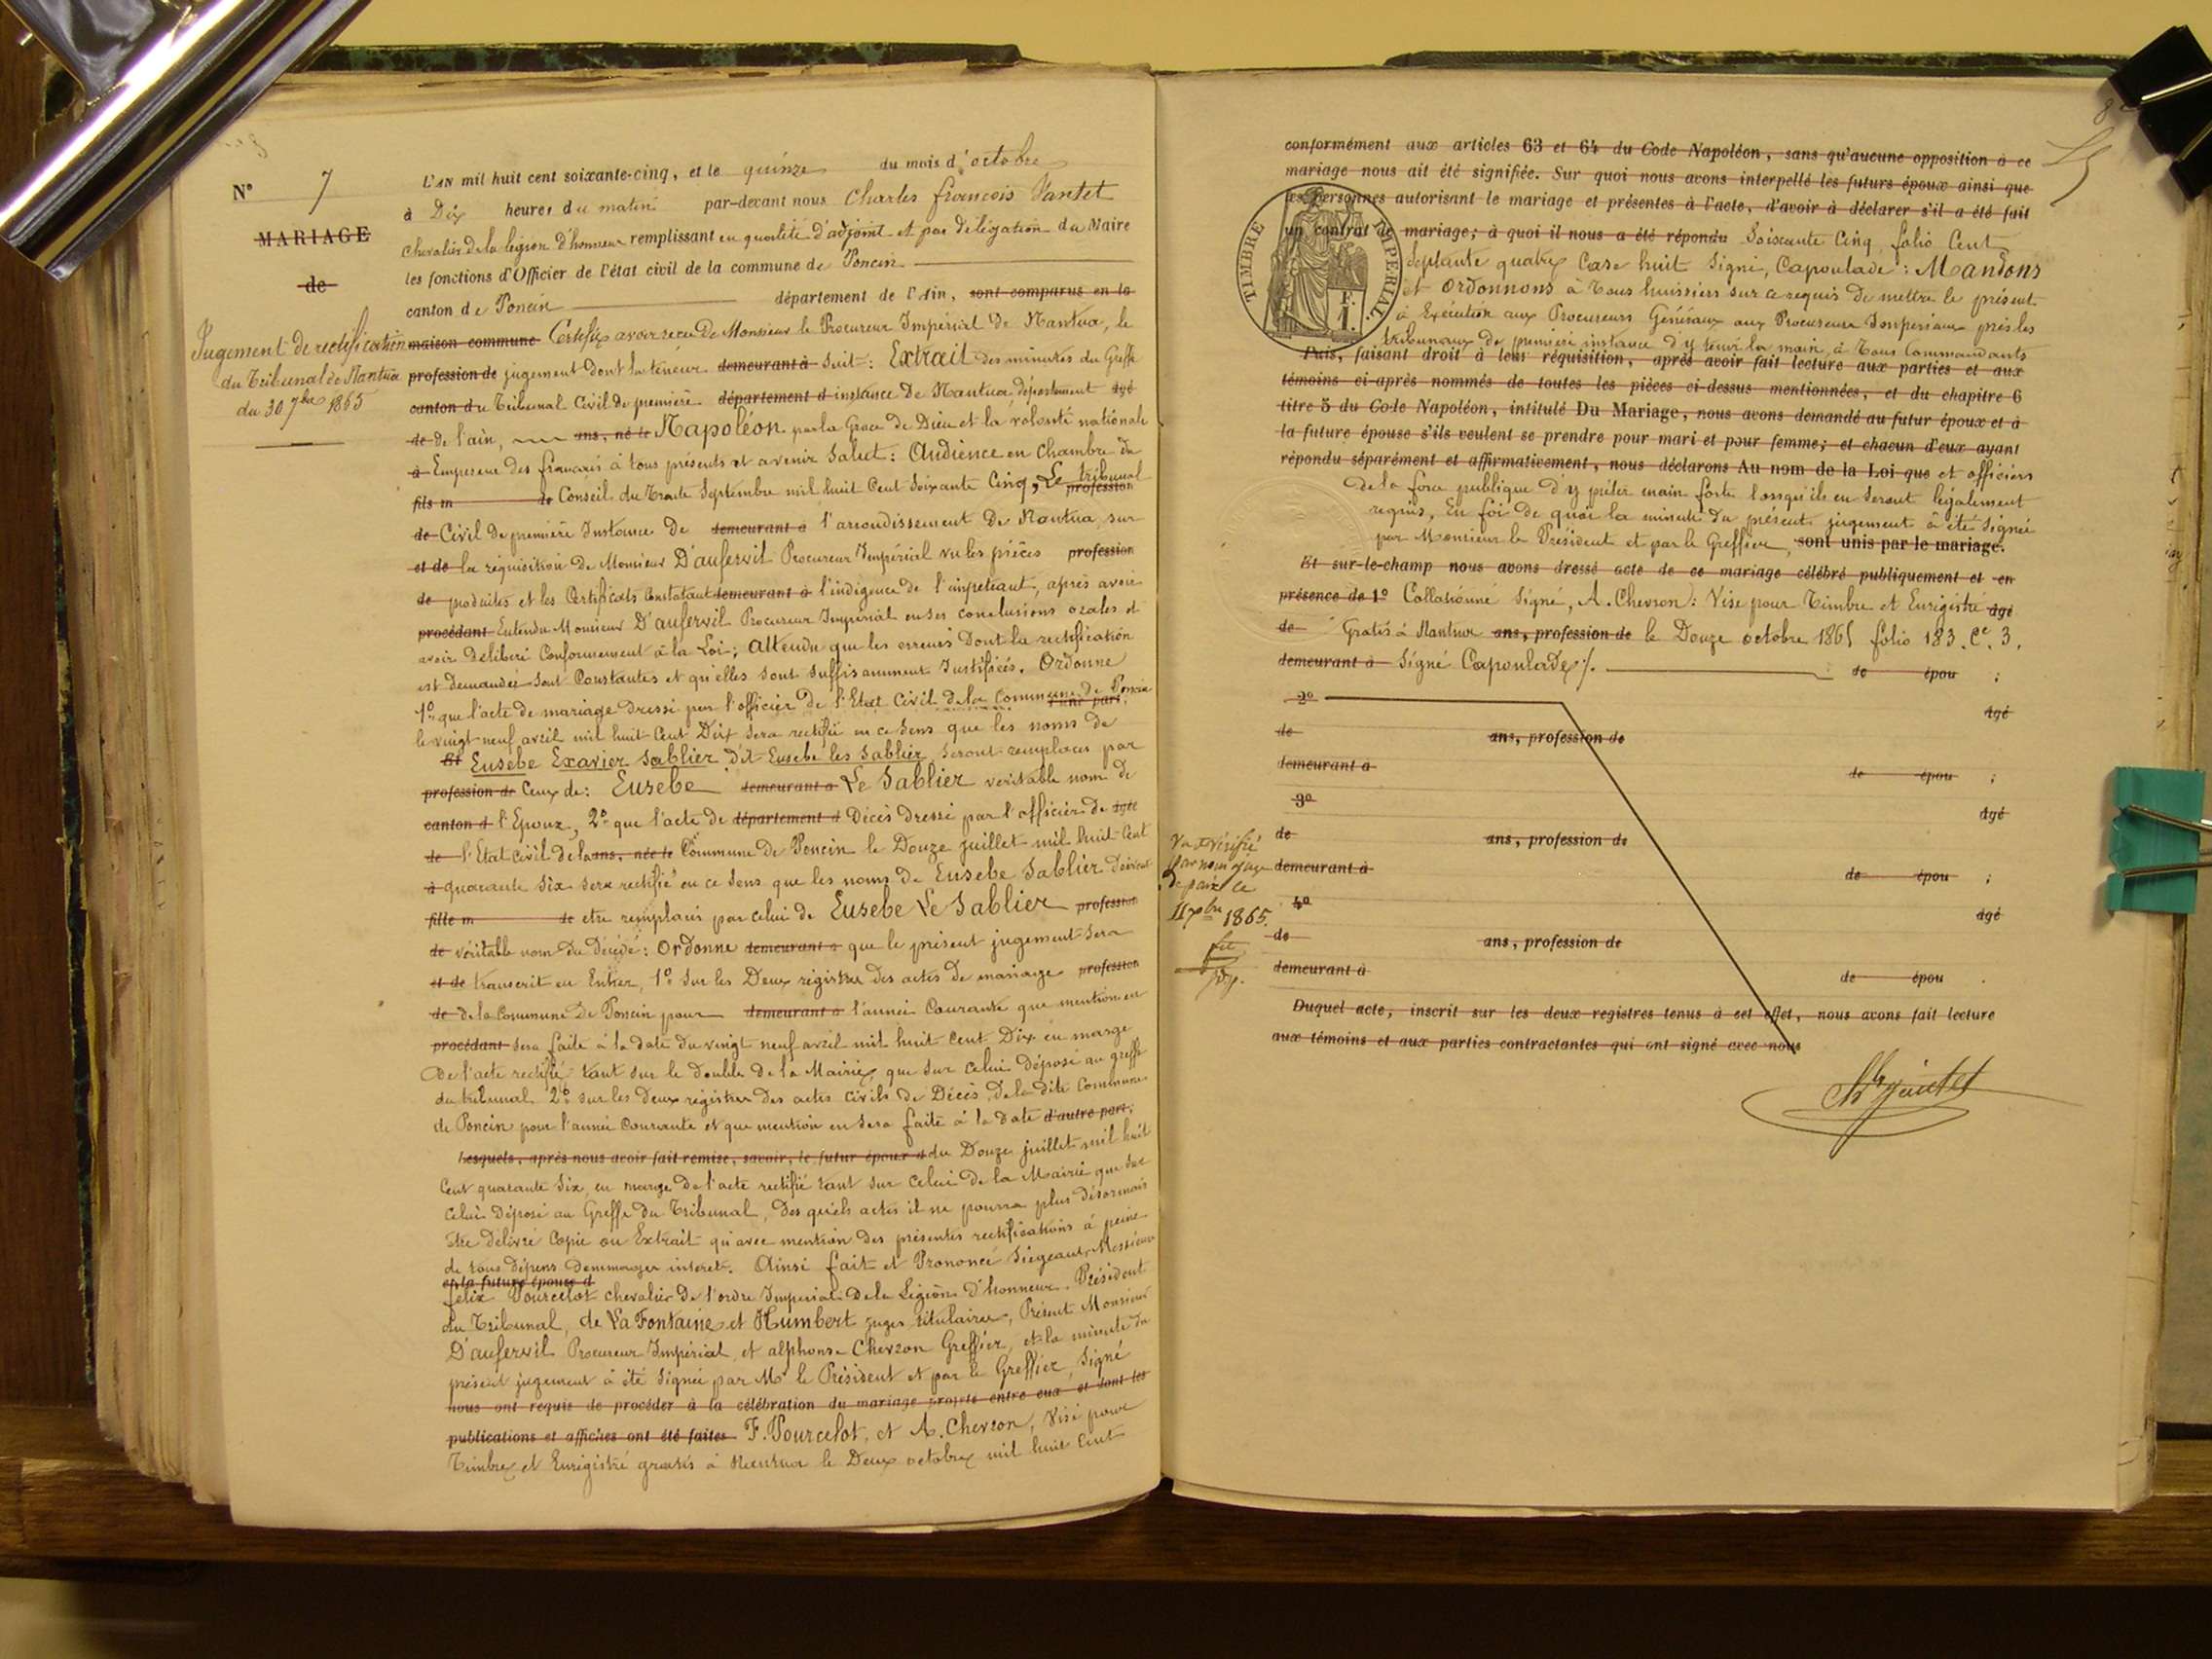 N° 7
MARIAGE
de
Jugement de rectification
du Tribunal de Nantua
du 30 7bre 1865
L'AN mil huit cent soixante-cinq, et le quinze du mois d'octobre
à Dix heures du matin par-devant nous Charles françois Jantet
chevalier de la légion d'honneur remplissant en qualité d'adjoint et par délégation du Maire
les fonctions d'Officier de l'état civil de la commune de Poncin
canton de Poncin département de l'Ain, sont comparus en la
maison commune Certifie avoir recu de Monsieur le Procureur Impérial de Nantua, le
profession de jugement dont la teneur demeurant à suit : Extrait des minutes du Greffe
canton du Tribunal Civil de première département d instance De Nantua département âgé
de de l'ain, ans, né le Napoléon par la Grace de Dieu et la volonté nationale
à Empereur des français à tous présents et avenir Salut : Audience en Chambre du
fils m de Conseil du Trente Septembre mil huit Cent Soixante Cinq, Le tribunal profession
de Civil de première Instance De demeurant à l'arrondissement De Nantua, sur
et de la réquisition de Monsieur D'aufervil Procureur Impérial vu les pièces profession
de produites et les Certificats Constatant demeurant à l'indigence de l'impetrant, après avoir
procédant Entendu Monsieur D'aufervil Procureur Impérial en ses conclusions orales et
avoir Délibéré Conformement à la Loi ; Attendu que les erreurs Dont la rectification
est demandée sont Constantes et qu'elles sont suffisamment Justifiées. Ordonne
1° que l'acte de mariage Dressé par l'officier de l'Etat Civil de la Commune de Poncin d'une part,
le vingt neuf avril mil huit Cent Dix sera rectifié en ce sens que les noms de
Et Eusebe Exavier Sablier dit Eusebe les Sablier seront remplacés par
profession de Ceux de : Eusebe demeurant à Le Sablier veritable nom de
canton d l'Epoux, 2° que l'acte de département d Décès dressé par l'officier de âgée
de l'Etat civil de la ans, née le Commune De Poncin le Douze juillet mil huit Cent
à quarante Six sera rectifié en ce sens que les noms de Eusebe Sablier doivent
fille m de etre remplacés par celui de Eusebe Le Sablier profession
de véritable nom du Décédé : Ordonne demeurant à que le présent jugement sera
et de transcrit en Entier, 1° sur les Deux régistres des actes de mariage profession
de de la Commune De Poncin pour demeurant à l'année Courante que mention en
procédant sera faite à la date du vingt neuf avril mil huit Cent Dix en marge
De l'acte rectifié tant sur le double de la Mairie, que sur celui déposé au greffe
du tribunal 2° sur les Deux régistres Des actes civils de Décès De la dite Commune
de Poncin pour l'année Courante et que mention en sera faite à la date d'autre part ;
Lesquels, après nous avoir fait remise, savoir, le futur époux d du Douze juillet mil huit
Cent quarante Six, en marge De l'acte rectifié tant sur celui de la Mairie que sur
celui déposé au Greffe du Tribunal, Des quels actes il ne pourra plus désormais
être délivré Copie ou Extrait qu'avec mention des présentes rectifications à peine
de tous dépens dommages interets. Ainsi fait et Prononcé Siégeants Messieurs
et la future épouse d
felix Pourcelot chevalier De l'ordre Imperial De la Légion d'honneur Président
du Tribunal, de La Fontaine et Humbert juges titulaires, Présent Monsieur
D'aufervil Procureur Impérial, et alphonse Chevron Greffier, et la minute du
présent jugement à été signée par Mr le Président et par le Greffier, Signé
nous ont requis de procéder à la célébration du mariage projeté entre eux et dont les
publications et affiches ont été faites F. Pourcelot, et A. Chevron, Visé pour
Timbre et Enrigistré gratis à Nantua le Deux octobre mil huit Cent
conformément aux articles 63 et 64 du Code Napoléon, sans qu'aucune opposition à ce
mariage nous ait été signifiée. Sur quoi nous avons interpellé les futurs époux ainsi que
les personnes autorisant le mariage et présentes à l'acte, d'avoir à déclarer s'il a été fait
un contrat de mariage ; à quoi il nous a été répondu Soixante Cinq folio Cent
TIMBRE IMPERIAL
septante quatre Case huit Signé, Capoulade : Mandons
et Ordonnons à Tous huissiers sur ce requis De mettre le présent
à Exécution aux Procureurs Généraux aux Procureurs Impériaux près les
tribunaux de première instance d'y tenir la main, à Tous Commandants
Puis, faisant droit à leur réquisition, après avoir fait lecture aux parties et aux
témoins ci-après nommés de toutes les pièces ci-dessus mentionnées, et du chapitre 6
titre 5 du Code Napoléon, intitulé Du Mariage, nous avons demandé au futur époux et à
la future épouse s'ils veulent se prendre pour mari et pour femme ; et chacun d'eux ayant
répondu séparément et affirmativement, nous déclarons Au nom de la Loi que et officiers
de la force publique d'y prêter main forte lorsqu'ils en seront légalement
requis, En foi de quoi la minute du présent jugement à été signée
par Monsieur le President et par le Greffier, sont unis par le mariage.
Et sur-le-champ nous avons dressé acte de ce mariage célébré publiquement et en
présence de 1° Collationné Signé, A. Chevron : Visé pour Timbre et Enrigistré âgé
de Gratis à Nantua ans, profession de le Douze octobre 1865 folio 183. Ce. 3.
demeurant à Signé Capoulade /. de épou ;
2° âgé
de ans, profession de
demeurant à de épou ;
3° âgé
de ans, profession de
demeurant à de épou ;
4° âgé
de ans, profession de
demeurant à de épou .
Vu et Vérifié
par nous juge
de paix ce
1865.
Duquel acte, inscrit sur les deux registres tenus à cet effet, nous avons fait lecture
aux témoins et aux parties contractantes qui ont signé avec nous
Ch Jantet